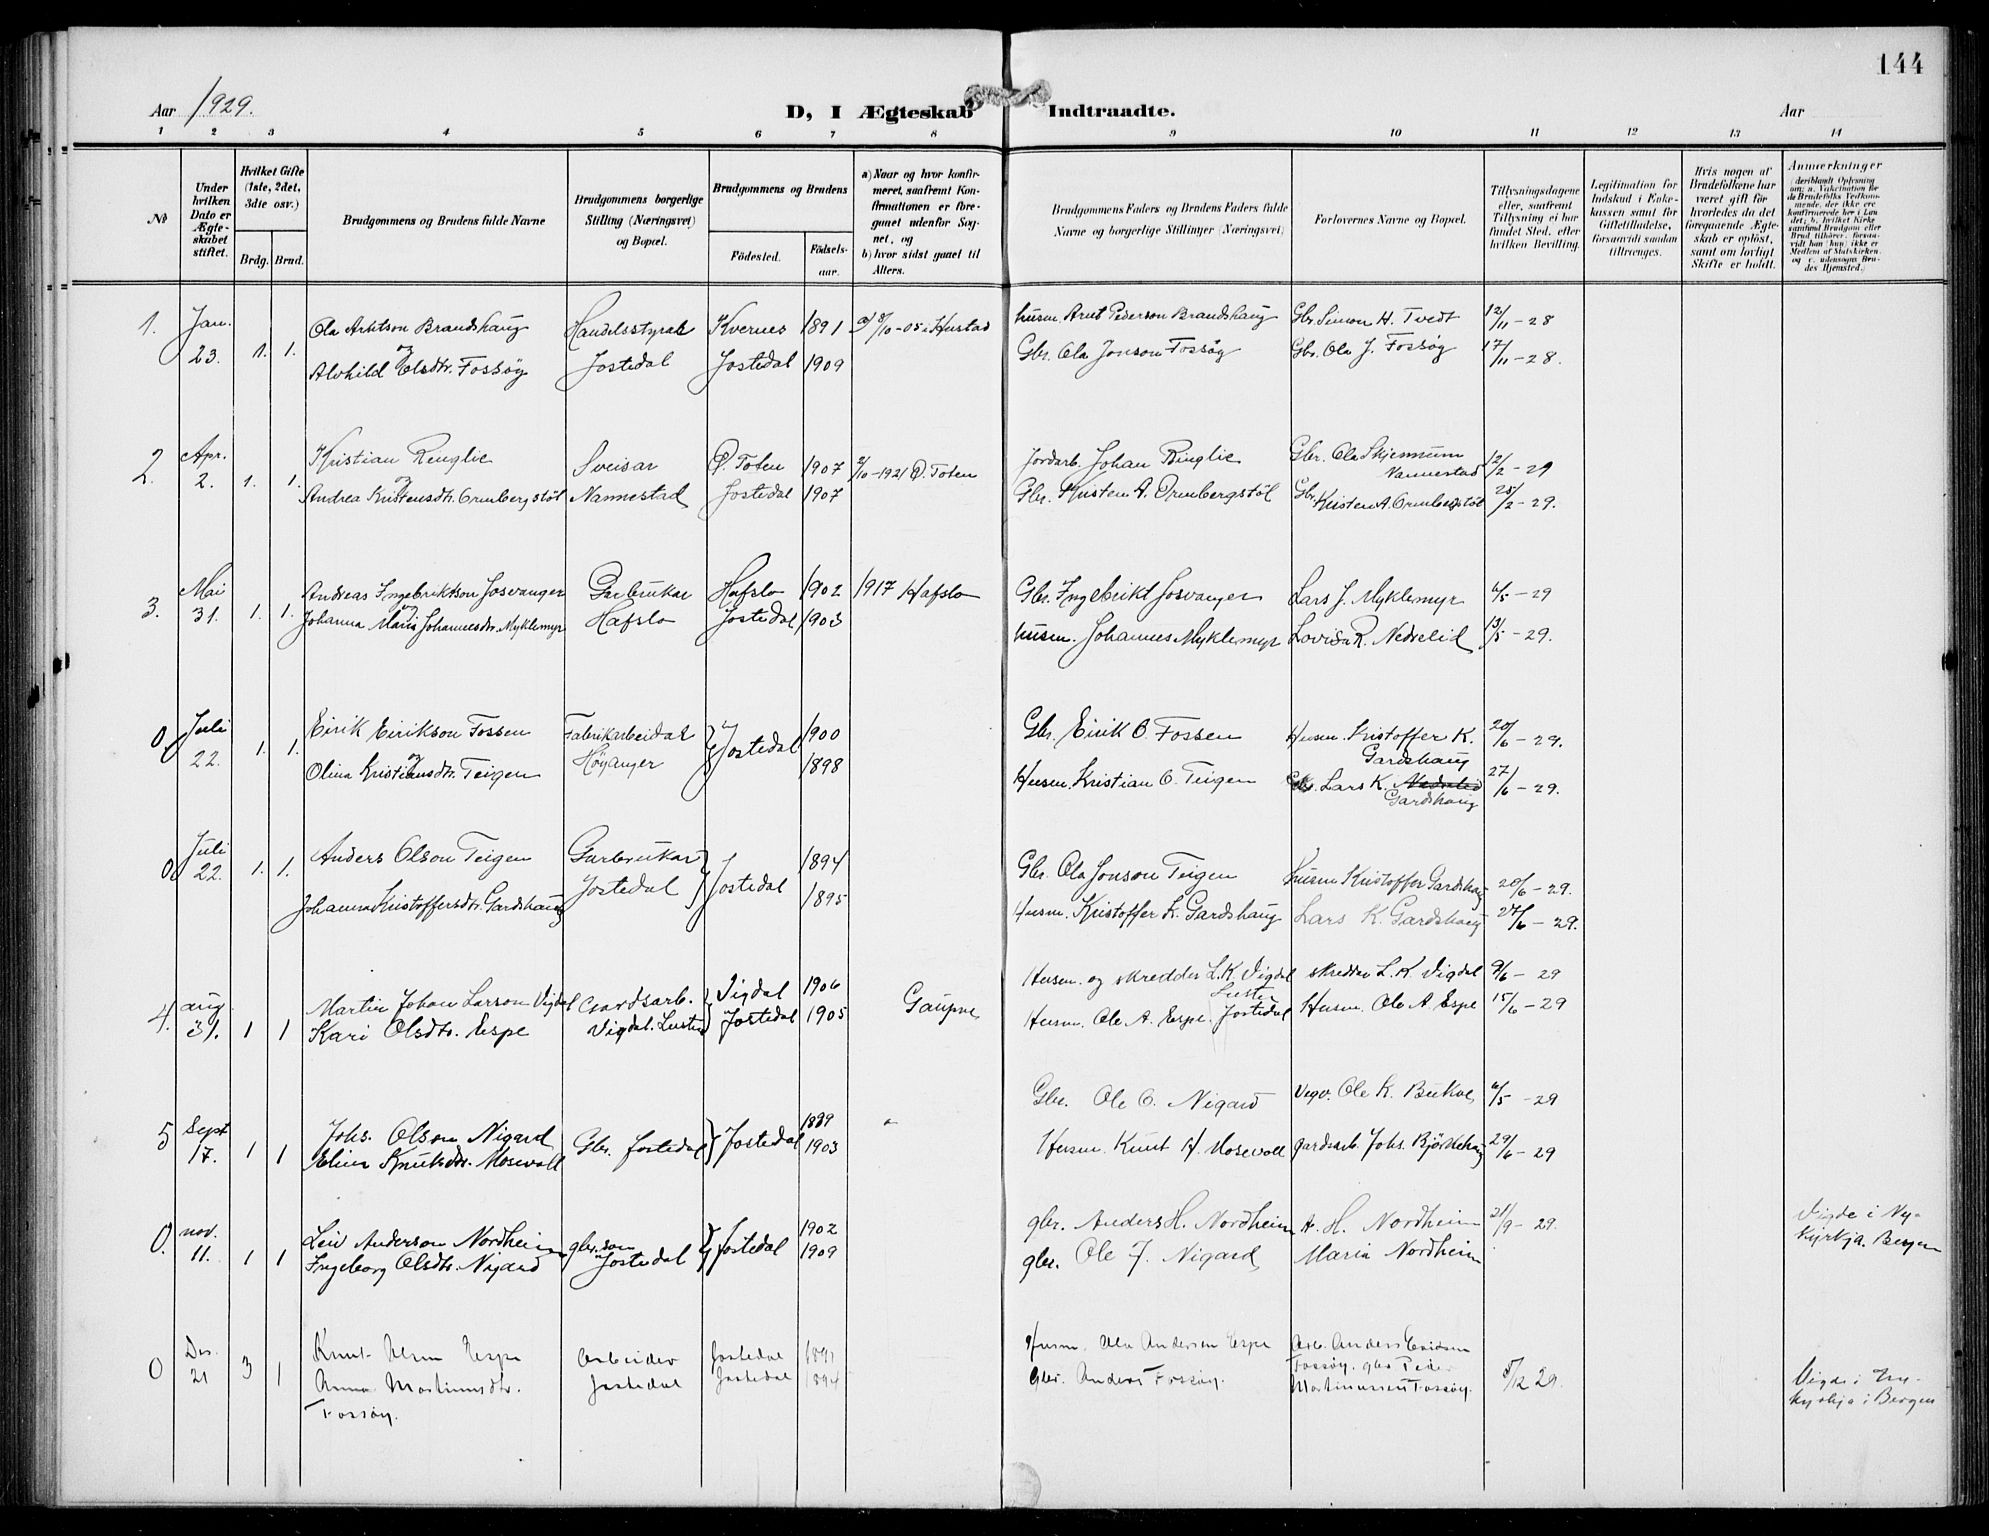 144
Aar 1929.
D, I Ægteskab Indtraadte.
Aar
1 2 3 4 5 6 7 8 9 10 11 12 13 14
No
Under hvilken Dato er Ægteskabet stiftet.
Hvilket Gifte (1ste, 2det, 3die osv.)
Brdg. Brud.
Brudgommens og Brudens fulde Navne
Brudgommens borgerlige Stilling (Næringsvei) og Bopæl.
Brudgommens og Brudens
Fødested.
Fødsels-aar.
a) Naar og hvor konfirmeret, saafremt Konfirmationen er foregaaet udenfor Sognet, og
b) hvor sidst gaaet til Alters.
Brudgommens Faders og Brudens Faders fulde Navne og borgerlige Stillinger (Næringsvei)
Forlovernes Navne og Bopæl.
Tillysningsdagene eller, saafremt Tillysning ei har fundet Sted, efter hvilken Bevilling.
Legitimation for Indskud i Enkekassen samt for Giftetilladelse, forsaavidt saadan tiltrænges.
Hvis nogen af Brudefolkene har været gift før hvorledes da det foregaaende Ægteskab er opløst, samt om lovligt Skifte er holdt.
Anmærkninger
1. Jan. 23. 1. 1. Ola Arntson Brandshaug Handelsstyrar Kvernes 1891 a) 8/10-05 i Hustad husm. Arnt Pederson Brandshaug Gbr. Simon H. Tvedt 12/11-28
og
Alvhild Olsdtr. Fossøy Jostedal Jostedal 1909 Gbr. Ola Jonson Fossøy Gbr. Ola J. Fossøy 17/11-28.
2. Apr. 2. 1. 1. Kristian Ringlie Sveisar Ø. Toten 1907 2/10-1921 Ø. Toten Jordarb. Johan Ringlie Gbr. Ola Skjennum Nannestad 12/2-29
og
Andrea Kristensdtr. Ormbergstøl Nannestad Jostedal 1907 Gbr. Kristen A. Ormbergstøl Gbr. Kristen A. Ormbergstøl 25/2-29.
3. Mai 31. 1. 1. Andreas Ingebriktson Josvanger Garbrukar Hafslo 1902 1917 Hafslo Gbr. Ingebrikt Josvanger Lars J. Myklemyr 4/5-29
og
Johanna Marie Johannesdtr. Myklemyr Hafslo Jostedal 1903 husm. Johannes Myklemyr Lovisa R. Nedrelid 13/5-29.
0. Juli 22. 1. 1. Eirik Eirikson Fossen Fabrikarbeidar Jostedal 1900 Gbr. Eirik O. Fossen Husm. Kristoffer K. Gardshaug 20/6-29.
og
Olina Kristiansdtr. Teigen Høyanger 1898 Husm. Kristian O. Teigen Gbr. Lars K. Nedrelid Gardshaug 27/6-29.
0. Juli 22. 1. 1. Anders Olson Teigen Garbrukar Jostedal 1894 Gbr. Ola Jonson Teigen husm Kristoffer Gardshaug 20/6-29.
Johanna Kristoffersdtr. Gardshaug Jostedal 1895 Husm. Kristoffer K. Gardshaug Lars K. Gardshaug 27/6-29.
4. aug 31. 1 1 Martin Johan Larson Vigdal Gardsarb. Vigdal 1906 Gaupne Husm. og skredder L.K. Vigdal Luster skredder L.K. Vigdal 9/6-29
Kari Olsdtr. Espe Vigdal. Luster Jostedal 1905 Husm. Ole A. Espe. Jostedal Husm. Ole A. Espe 15/6-29
5 Sept 17. 1 1 Johs. Olson Nigard Gbr. Jostedal Jostedal 1899 Gbr. Ole O. Nigard Vegv. Ole K. Bukve 6/5-29
Elina Knutsdtr. Mosevoll 1903 Husm. Knut H. Mosevoll gardsarb Johs. Bjørkehaug 29/6-29
0. nov. 11. 1 1 Leiv Anderson Nordheim gbr.son Jostedal 1902 gbr. Anders H. Nordheim A. H. Nordheim 21/9-29. Vigde i Nykyrkja. Bergen
Ingeborg Olsdtr. Nigard Jostedal 1909 gbr. Ole J. Nigard Maria Nordheim
0 Des. 21 3 1 Knut Olsen Espe Arbeider Jostedal Husm. Ola Andersen Espe Arb. Anders Fossøy. gbr Peder 5/12 29. Vigde i Nykyrkja i Bergen
Anna Martinusdtr. Fossøy. Jostedal Jostedal 1894 Gbr. Anders Fossøy. Martinussen Fossøy.